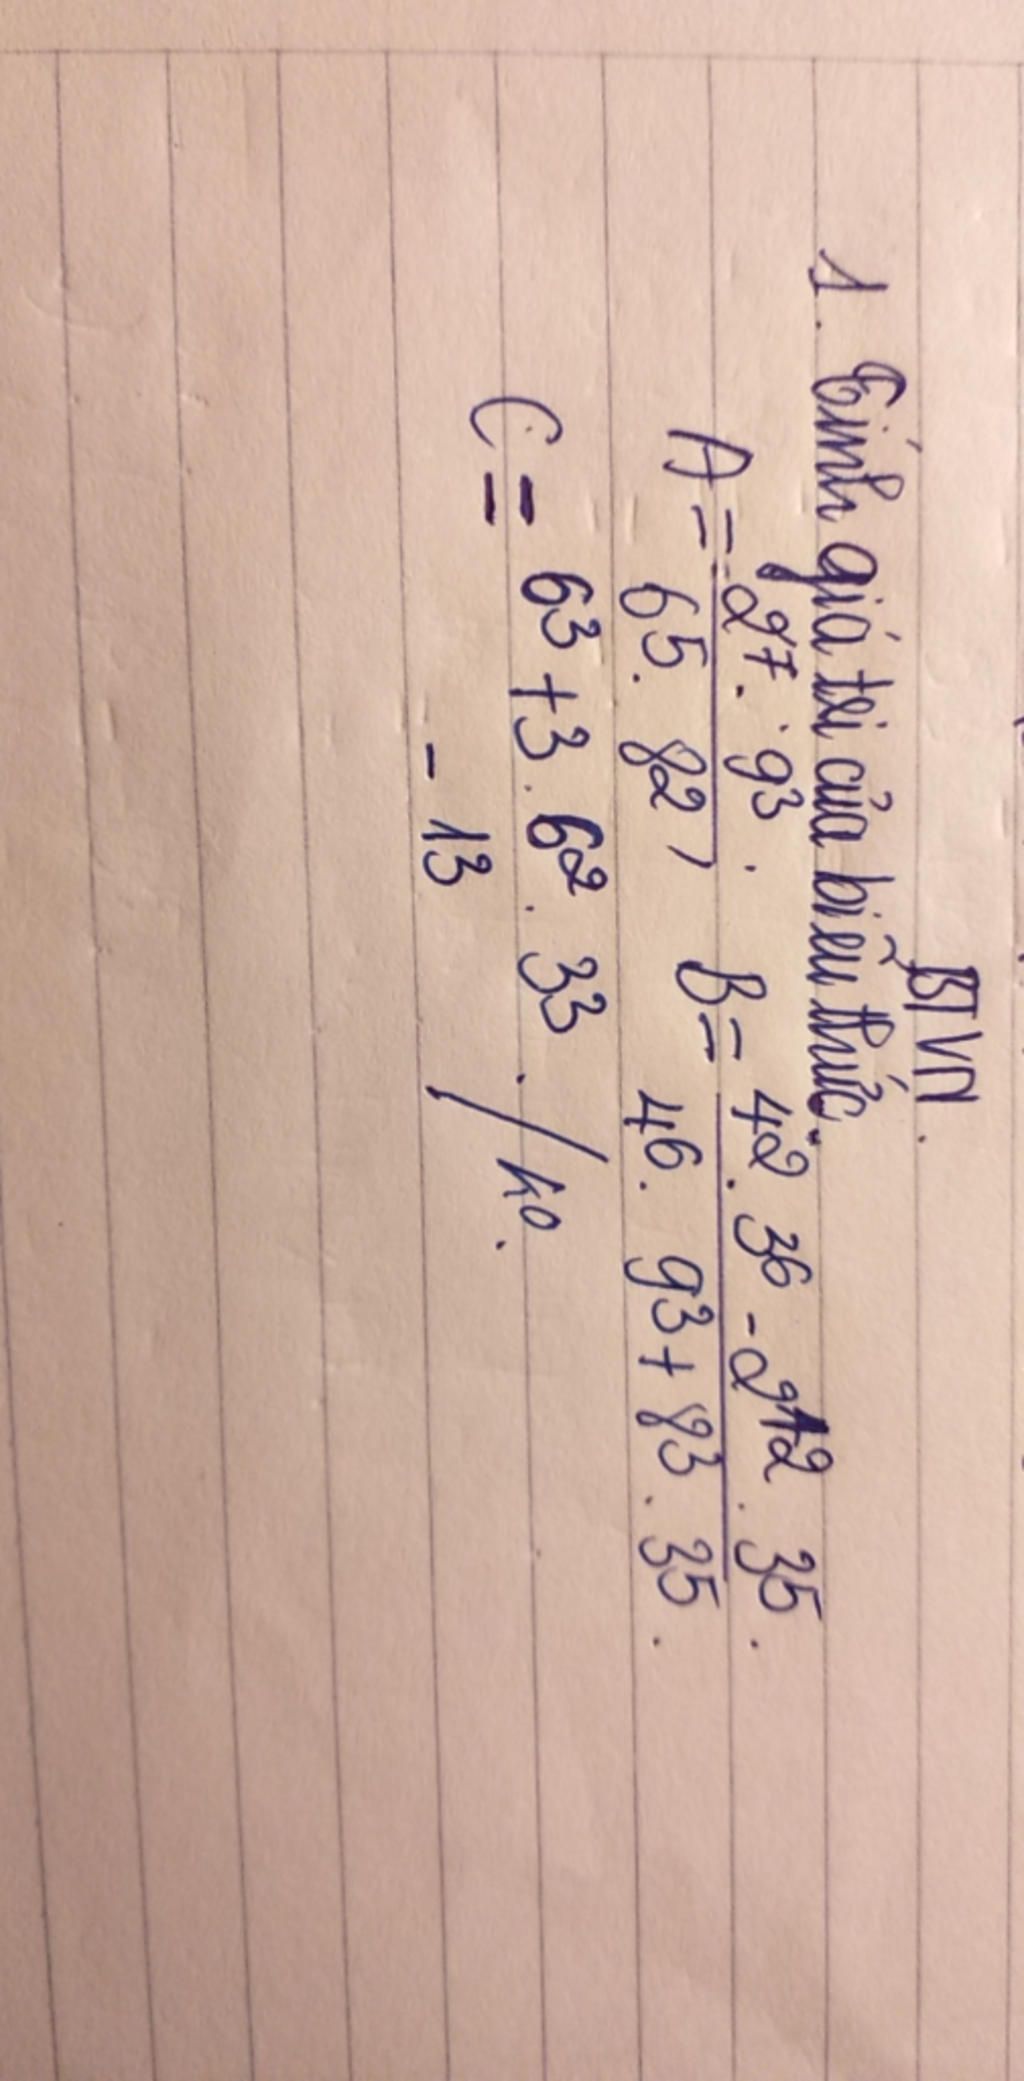 BTVN.
1. Tính giá trị của biểu thức.
A = 27 . 9³ . B = 42 . 36 - 212 . 35 .
65 . 82 , 46 . 93 + 83 . 35 .
C = 63 + 3 . 62 . 33 . / ho .
- 13